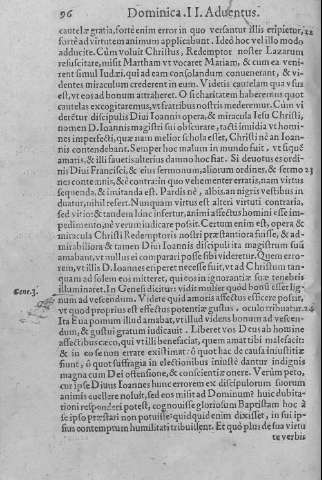 96 Dominica. II. Aduentus.
cautelæ gratia, fortè enim error in quo versantur illis eripietur, 22
fortè ad virtutem animum applicabunt. Ideò hoc vel illo modo
adducite. Cùm voluit Christus, Redemptor noster Lazarum
resuscitare, misit Martham vt vocaret Mariam, & cum ea veni-
rent simul Iudæi, qui ad eam consolandam conuenerant, & vi-
dentes miraculum crederent in eum. Videtis cautelam qua vsus
est, vt eos ad bonum attraheret. O si charitatem haberemus quot
cautelas excogitaremus, vt fratribus nostris mederemur. Cùm vi
deretur discipulis Diui Ioannis opera, & miracula Iesu Christi,
nomen D. Ioannis magistri sui obscurare, tacti inuidia vt homi-
nes imperfecti, quæ nam melior schola esset, Christi nè an Ioan-
nis contendebant. Semper hoc malum in mundo fuit, vt si quæ
amatis, & illi faueris alterius damno hoc fiat. Si deuotus es ordi-
nis Diui Francisci, & eius sermonum, aliorum ordines, & sermo 23
nes contemnis, & è contra in quo vehementer erratis, nam virtus
sequenda, & imitanda est. Pardis nè, albis, an nigris vestibus in
duatur, nihil refert. Nunquam virtus est alteri virtuti contraria,
sed vitio: & tandem hinc infertur, animi affectus homini esse im-
pedimento, nè verum iudicare possit. Certum enim est, opera &
miracula Christi Redemptoris nostri præstantiora fuisse, & ad-
mirabiliora & tamen Diui Ioannis discipuli ita magistrum suũ
amabant, vt nullus ei comparari posse sibi videretur. Quem erro-
rem, vt illis D. Ioannes eriperet necesse fuit, vt ad Christum tan-
quam ad solem eos mitteret, qui eos in ignorantiæ suæ tenebris
illuminaret. In Genesi dicitur: vidit mulier quòd bonũ esset lig-
Gene. 3. num ad vescendum. Videte quid amoris affectus efficere possit,
vt quod proprius est effectus potentiæ gustus, oculo tribuatur. 24
Ita Eua pomum illud amabat, vt illud videns bonum ad vescen-
dum, & gustui gratum iudicauit. Liberet vos Deus ab homine
affectibus cæco, qui vt illi benefaciat, quem amat tibi malefacit:
& in eo se non errare existimat: ò quot hac de causa iniustitiæ
sunt, ò quot suffragia in electionibus iniustè dantur indignis
magna cum Dei offensione, & conscientiæ onere. Verùm peto,
cur ipse Diuus Ioannes hunc errorem ex discipulorum suorum
animis euellere noluit, sed eos misit ad Dominum? huic dubita-
tioni responderi potest, cognouisse gloriosum Baptistam hoc à
se ipso præstari non potuisse: quidquid enim dixisset, in sui ip-
sius contemptum humilitati tribuissent. Et quò plus de sua virtu
te verbis